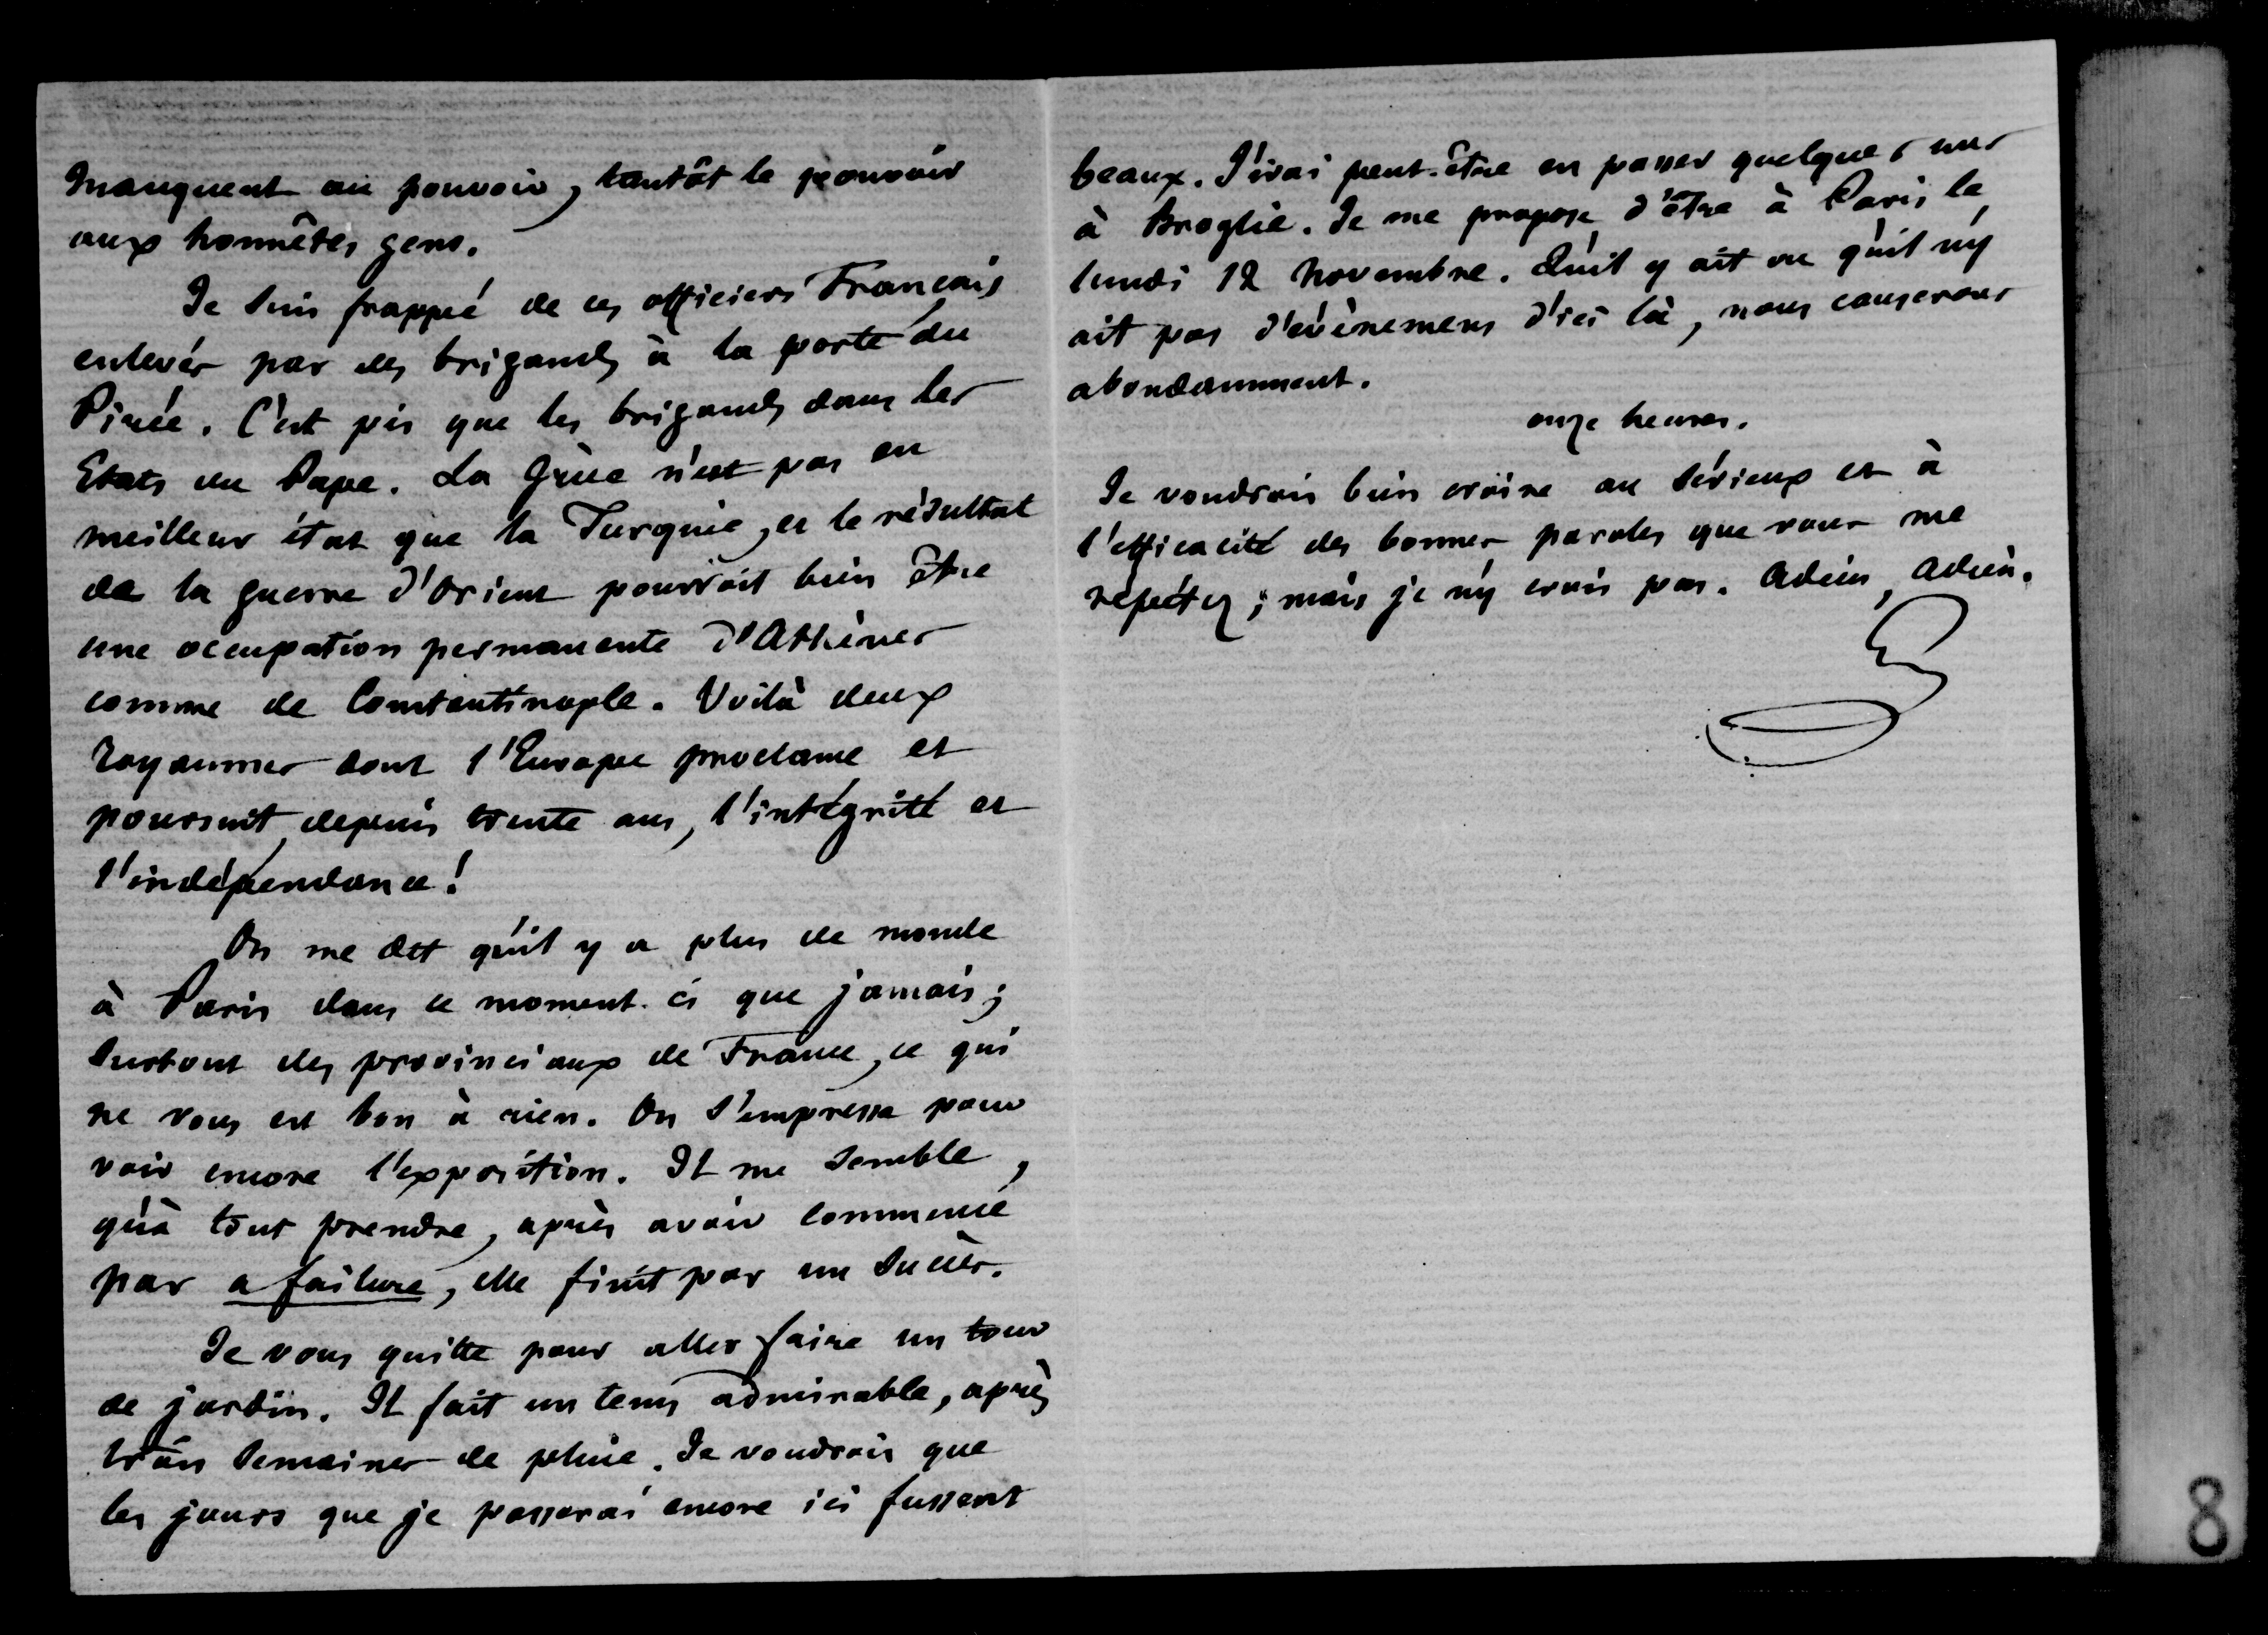 manquent au pouvoir, tantôt le pouvoir
aux honnêtes gens.
Je suis frappé de ces officiers Français
enlevés par des brigands à la porte du
Pirée. C'est pis que les brigands dans les
Etats du Pape. La Grèce n'est pas en
meilleur état que la Turquie, et le résultat
de la guerre d'Orient pourroit bien être
une occupation permanente d'Athènes
comme de Constantinople. Voilà deux
royaumes dont l'Europe proclame et
poursuit, depuis trente ans, l'intégrité et
l'indépendance!
On me dit qu'il y a plus de monde
à Paris dans ce moment-ci que jamais;
surtout des provinciaux de France, ce qui
ne vous est bon à rien. On s'empresse pour
voir encore l'exposition. Il me semble,
qu'à tout prendre, après avoir commencé
par a failure, elle finit par un succès.
Je vous quitte pour aller faire un tour
de jardin. Il fait un tems admirable, après
trois semaines de pluie. Je voudrois que
les jours que je passerai encore ici fussent
beaux. J'irai peut-être en passer quelques uns
à Broglie. Je me propose d'être à Paris le
lundi 12 novembre. Qu'il y ait ou qu'il n'y
ait pas d'évènemens d'ici là, nous causerons
abondamment.
onze heures.
Je voudrois bien croire au sérieux et à
l'efficacité des bonnes paroles que vous me
répétez; mais je n'y crois pas. Adieu, Adieu.
8